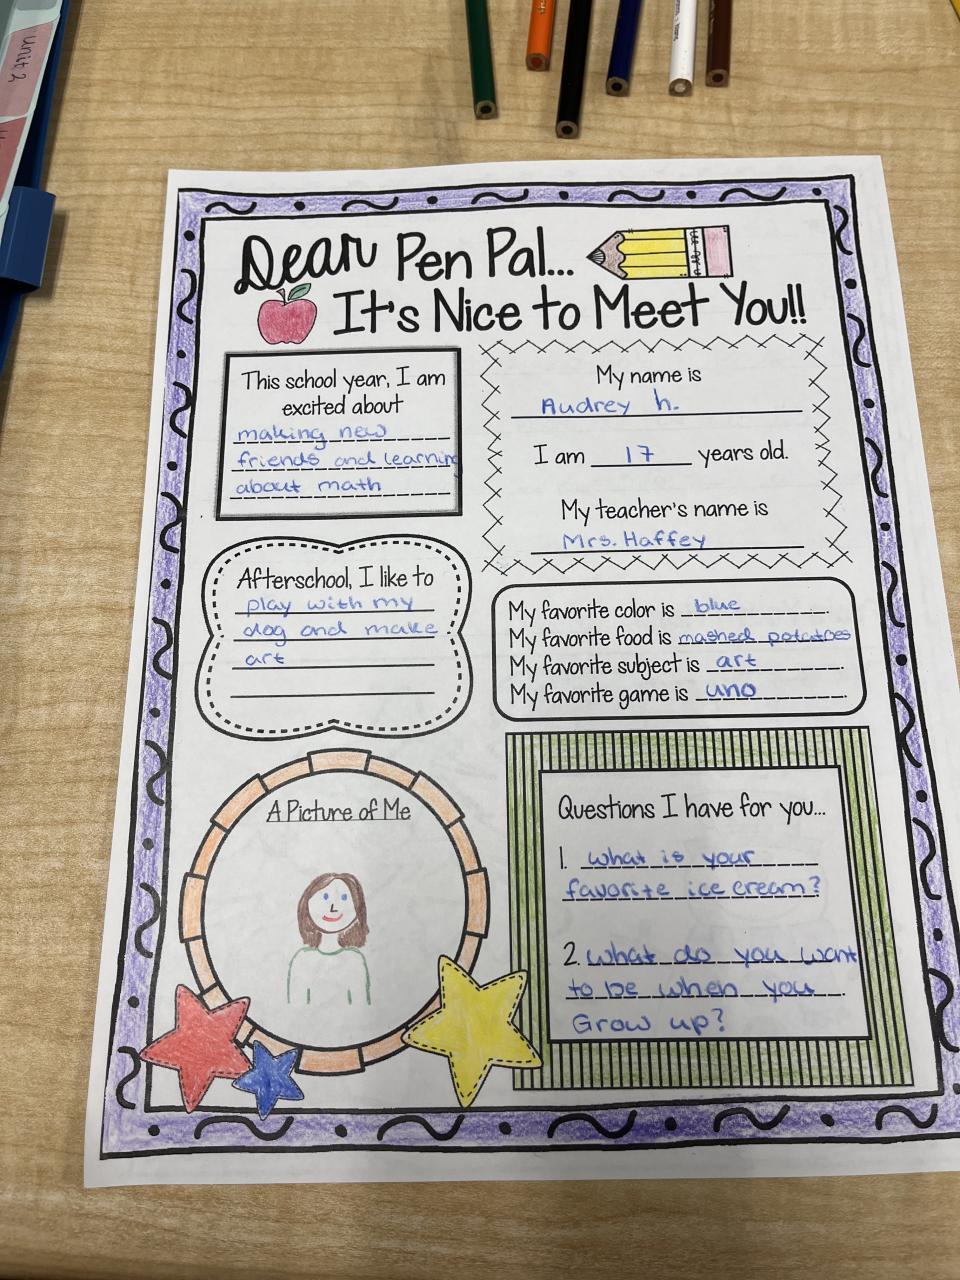 unit 2
Dear Pen Pal...
It's Nice to Meet You!!
This school year, I am
excited about
making new
friends and learning
about math
My name is
Audrey h.
I am 17 years old.
My teacher's name is
Mrs. Haffey
Afterschool, I like to
play with my
dog and make
art
My favorite color is blue.
My favorite food is mashed potatoes
My favorite subject is art.
My favorite game is uno.
A Picture of Me
Questions I have for you...
1. what is your
favorite ice cream?
2. what do you want
to be when you.
Grow up?